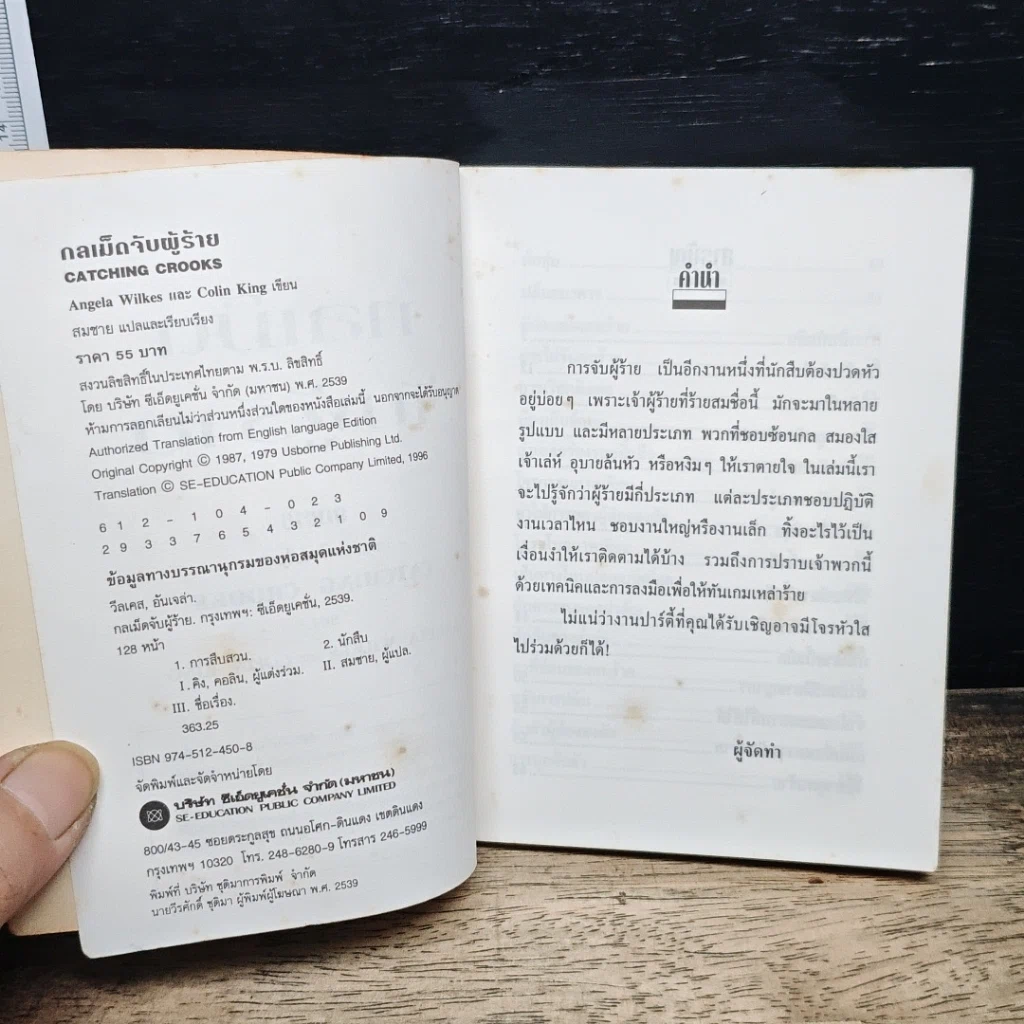 กลเม็ดจับผู้ร้าย
CATCHING CROOKS
Angela Wilkes และ Colin King เขียน
สมชาย แปลและเรียบเรียง
ราคา 55 บาท
สงวนลิขสิทธิ์ในประเทศไทยตาม พ.ร.บ. ลิขสิทธิ์
โดย บริษัท ซีเอ็ดยูเคชั่น จำกัด (มหาชน) พ.ศ. 2539
ห้ามการลอกเลียนไม่ว่าส่วนหนึ่งส่วนใดของหนังสือเล่มนี้ นอกจากจะได้รับอนุญาต
Authorized Translation from English language Edition
Original Copyright © 1987, 1979 Usborne Publishing Ltd.
Translation © SE-EDUCATION Public Company Limited, 1996
6 1 2 - 1 0 4 - 0 2 3
2 9 3 3 7 6 5 4 3 2 1 0 9
ข้อมูลทางบรรณานุกรมของหอสมุดแห่งชาติ
วีลเคส, อันเจล่า.
กลเม็ดจับผู้ร้าย. กรุงเทพฯ: ซีเอ็ดยูเคชั่น, 2539.
128 หน้า
1. การสืบสวน. 2. นักสืบ
I. คิง, คอลิน, ผู้แต่งร่วม. II. สมชาย, ผู้แปล.
III. ชื่อเรื่อง.
363.25
ISBN 974-512-450-8
จัดพิมพ์และจัดจำหน่ายโดย
บริษัท ซีเอ็ดยูเคชั่น จำกัด (มหาชน)
SE-EDUCATION PUBLIC COMPANY LIMITED
800/43-45 ซอยตระกูลสุข ถนนอโศก-ดินแดง เขตดินแดง
กรุงเทพฯ 10320 โทร. 248-6280-9 โทรสาร 246-5999
พิมพ์ที่ บริษัท ชุติมาการพิมพ์ จำกัด
นายวีรศักดิ์ ชุติมา ผู้พิมพ์ผู้โฆษณา พ.ศ. 2539
คำนำ
การจับผู้ร้าย เป็นอีกงานหนึ่งที่นักสืบต้องปวดหัว
อยู่บ่อยๆ เพราะเจ้าผู้ร้ายที่ร้ายสมชื่อนี้ มักจะมาในหลาย
รูปแบบ และมีหลายประเภท พวกที่ชอบซ้อนกล สมองใส
เจ้าเล่ห์ อุบายล้นหัว หรือหงิมๆ ให้เราตายใจ ในเล่มนี้เรา
จะไปรู้จักว่าผู้ร้ายมีกี่ประเภท แต่ละประเภทชอบปฏิบัติ
งานเวลาไหน ชอบงานใหญ่หรืองานเล็ก ทิ้งอะไรไว้เป็น
เงื่อนงำให้เราติดตามได้บ้าง รวมถึงการปราบเจ้าพวกนี้
ด้วยเทคนิคและการลงมือเพื่อให้ทันเกมเหล่าร้าย
ไม่แน่ว่างานปาร์ตี้ที่คุณได้รับเชิญอาจมีโจรหัวใส
ไปร่วมด้วยก็ได้!
ผู้จัดทำ